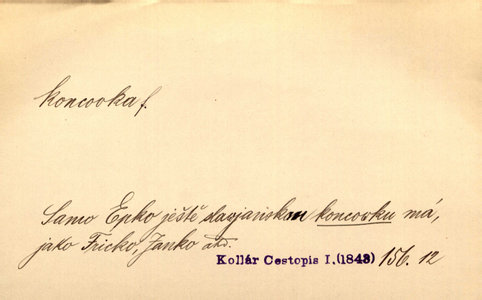 koncovka f.
Samo Epko ještě slavjanskou koncovku má,
jako Fricko, Janko atd.
Kollár Cestopis I. (1843) 156. 12